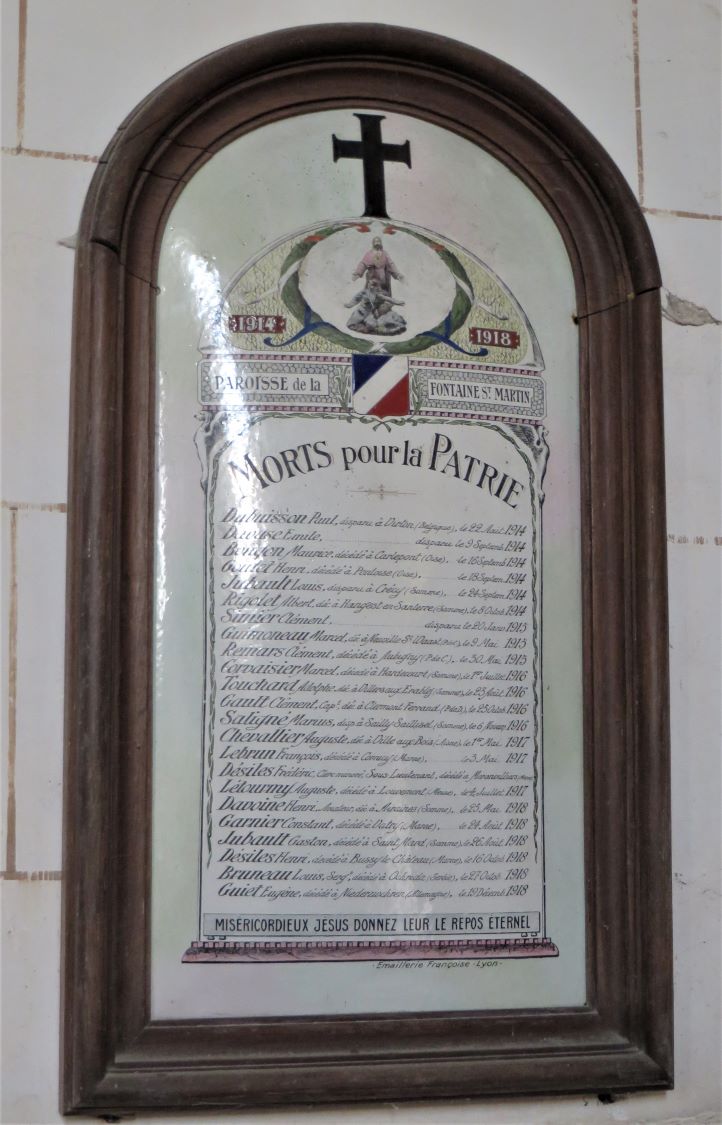 1914
1918
PAROISSE de la
FONTAINE St. MARTIN
MORTS pour la PATRIE
Dubuisson Paul, disparu à Virton (Belgique), le 22 Août 1914
Davouse Emile, disparu le 9 Septemb. 1914
Maurice, décédé à Carlepont (Oise), le 16 Septemb. 1914
Goutel Henri, décédé à Pontoise (Oise), le 18 Septem. 1914
Jubault Louis, disparu à Crécy (Somme), le 24 Septem. 1914
Rigolet Albert, dé. à Hangest en Santerre (Somme), le 8 Octob. 1914
Clément, disparu le 20 Janv. 1915
Guimoneau Marcel, dé. à Neuville St Waast (P.de C.), le 9 Mai 1915
Remars Clément, décédé à Aubigny (P.de C.), le 30 Mai 1915
Corvaisier Marcel, décédé à Hardecourt (Somme), le 1er Juillet 1916
Touchard Adolphe, dé. à Villers aux Erables (Somme), le 23 Août 1916
Gault Clément, Capl, dé. à Clermont Ferrand (P.de D.), le 25 Octob. 1916
Saligné Marius, disp. à Sailly Saillisel (Somme), le 6 Novem. 1916
Chevallier Auguste, dé. à Ville aux Bois (Aisne), le 1er Mai 1917
Lebrun François, décédé à Cormicy (Marne), le 3 Mai 1917
Désiles Frédéric, Sous Lieutenant, décédé à
Létourmy Auguste, décédé à Louvemont (Meuse), le 4 Juillet 1917
Davoine Henri, dé. à (Somme), le 23 Mai 1918
Garnier Constant, décédé à Vatry (Marne), le 24 Août 1918
Jubault Gaston, décédé à Saint Mard (Somme), le 26 Août 1918
Désiles Henri, décédé à Bussy le Château (Marne), le 16 Octob. 1918
Bruneau Louis, Sergt, décédé à (Serbie), le 27 Octob. 1918
Guiet Eugène, décédé à Niederzwehren (Allemagne), le 19 Décemb. 1918
MISÉRICORDIEUX JÉSUS DONNEZ LEUR LE REPOS ÉTERNEL
- Emaillerie Françoise - Lyon -